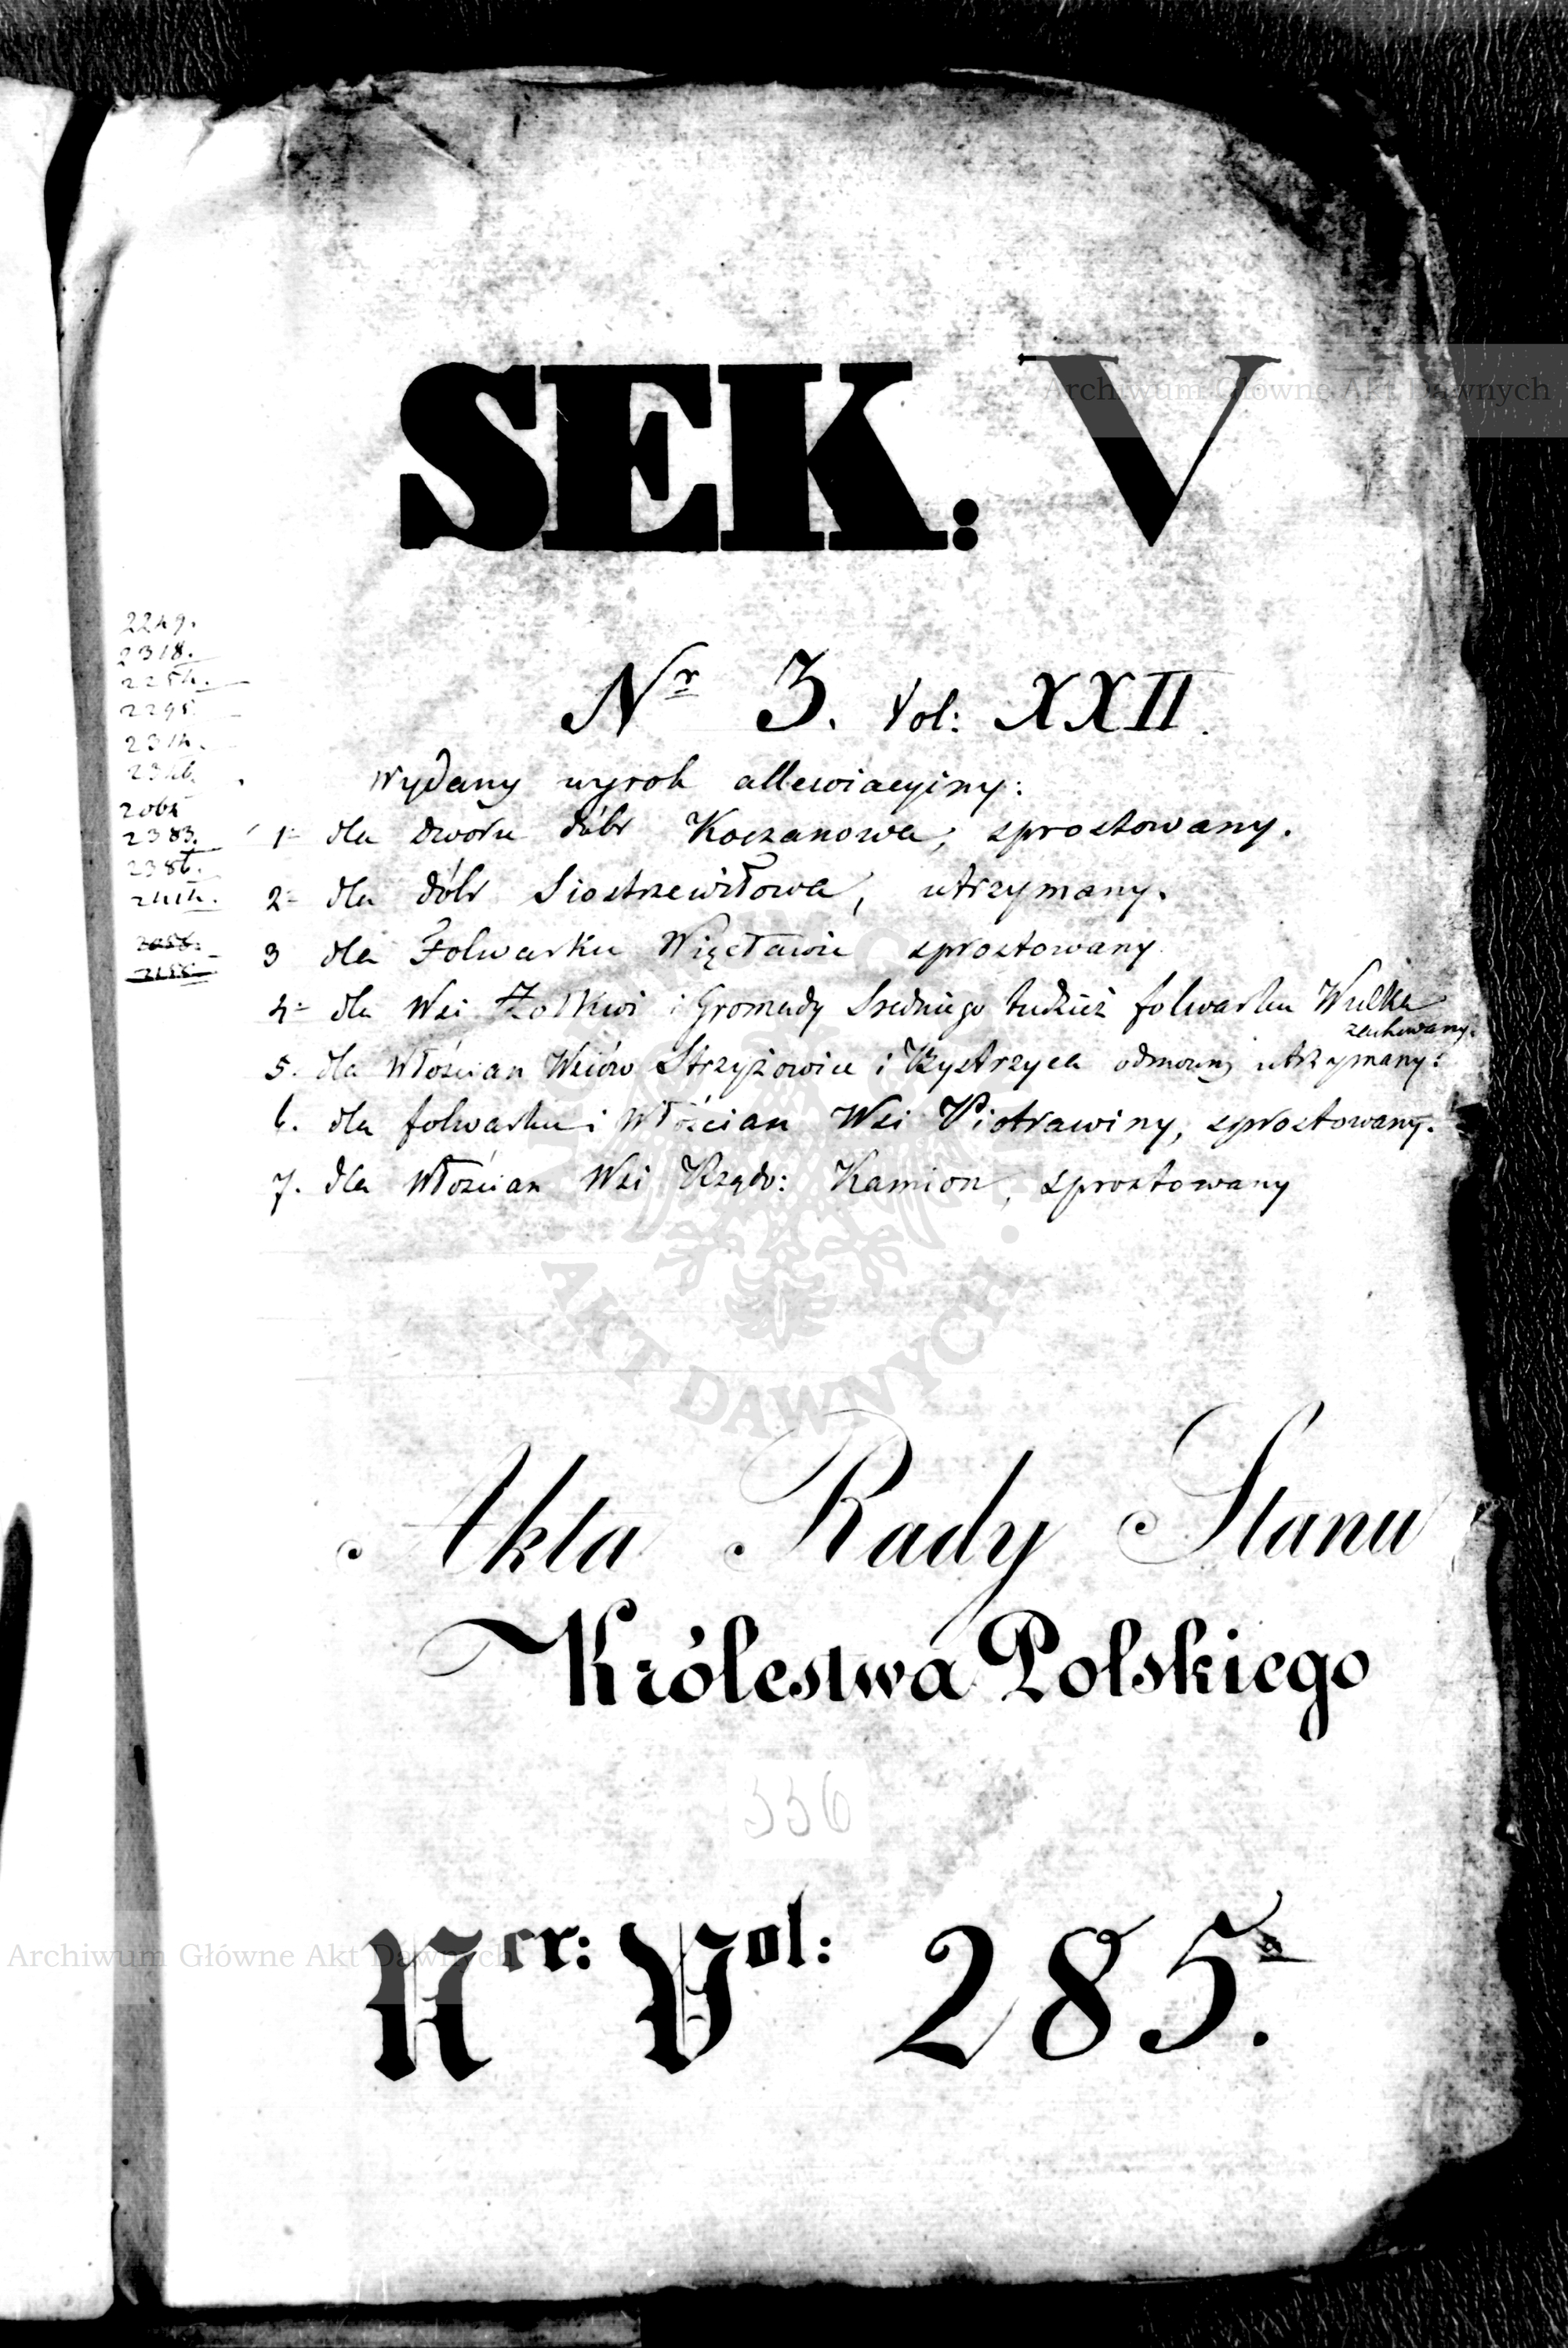 SEK: V
Archiwum Główne Akt Dawnych
2249.
2318.
2295
2383.
Nr 3. Vol: XXII.
Wydany wyrok allewiacyjny:
1= dla dworu dóbr Koczanowa, sprostowany.
2= dla dóbr Siostrzewitowa, utrzymany.
3 dla Folwarku Więcławic sprostowany
4= dla Wsi Żołkwi i Gromady Średniego tudzież folwarku Wulka
zachowany.
5. dla Włościan Wsiów Strzyżowice i Bystrzyca odmowny utrzymany:
6. dla folwarku i Włościan Wsi Piotrawiny, sprostowany.
7. dla Włościan Wsi Rządo: Kamion, sprostowany
AKT DAWNYCH
Akta Rady Stanu
Królestwa Polskiego
336
Archiwum Główne Akt Dawnych
Ner: Vol: 285.